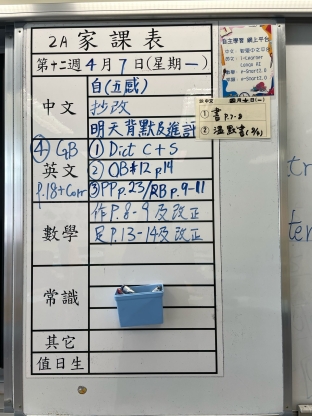 2A 家課表
第十二週 4月7日(星期一)
中文
自(五感)
抄改
明天背默及進評
英文
① Dict C+S
② OB#12 p14
③ PP p.23/RB p.9-11
④ GB
p.18+Corr
數學
作P.8-9及改正
是P.13-14及改正
常識
其它
值日生
自主學習 網上平台
① 書 P.7-8
② 溫默書